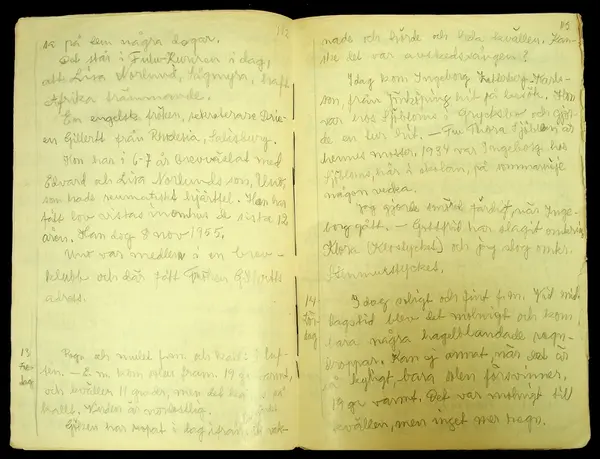 se på dem några dagar.
Det står i Falu-Kuriren i dag,
att Lisa Norlund, Sågmyra, haft
Afrika främmande.
En engelsk fröken, sekreterare
en Gillett från Rhodesia, Salisbury.
Hon har i 6-7 år brevväxlat med
Edvard och Lisa Norlunds son,
som hade reumatiskt hjärtfel. Han har
fått lov vistas inomhus de sista 12
åren. Han dog 8 nov 1955.
var medlem i en brev-
klubb och där fått Fröken Gilletts
adress.
13
Fre-
dag
Regn och mulet fm. och kallt i luf-
ten. – E. m. kom solen fram. 19 gr varmt,
och kvällen 11 grader, men det
kallt.
Göken har ropat i dag
85
nade och hörde och hela kvällen. Kan-
ske det var avskedssången?
Idag kom Ingeborg Karls-
son, från Jönköping hit på besök. Hon
var hos Sjöbloms i Grycksbo och gjor-
de en tur hit. – Fru Thora Sjöblom är
hennes moster. 1934 var Ingeborg hos
Sjöbloms, här i skolan, på sommarnöje
någon vecka.
Jag gjorde färdigt, när Inge-
borg gått. – Gottfrid har slagit omkring
Klora (Klostycket) och jag slog omkr.
Stenmurstycket.
14
Lör-
dag
Idag soligt och fint f.m. Vid mid-
dagstid blev det molnigt och kom
bara några hagelblandade regn-
droppar. Kan ej annat, när det är
så kyligt, bara solen försvinner,
19 gr varmt. Det var molnigt till
kvällen, men inget mer regn.